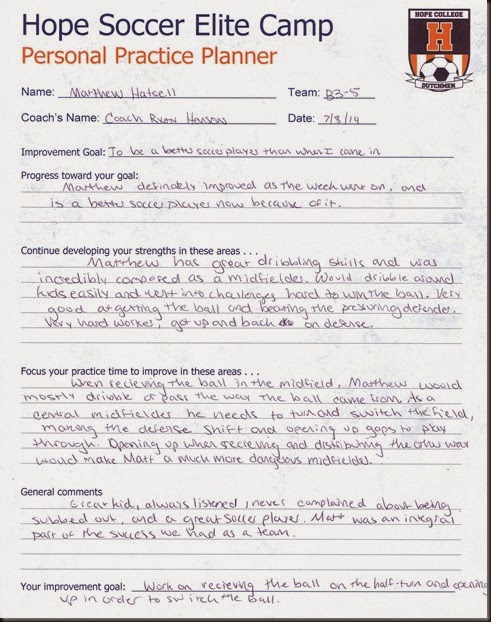 Hope Soccer Elite Camp
HOPE COLLEGE
H
DUTCHMEN
Personal Practice Planner
Name: Matthew Hatsell Team: B3-5
Coach's Name: Coach Ryan Hanson Date: 7/8/14
Improvement Goal: To be a better soccer player than when I came in
Progress toward your goal:
Matthew definately improved as the week went on, and
is a better soccer player now because of it.
Continue developing your strengths in these areas . . .
Matthew has great dribbling skills and was
incredibly composed as a midfielder. Would dribble around
kids easily and went into challenges hard to win the ball. Very
good at getting the ball and beating the pressuring defender.
Very hard worker, got up and back on defense.
Focus your practice time to improve in these areas . . .
When recieving the ball in the midfield, Matthew would
mostly dribble or pass the way the ball came from. As a
central midfielder he needs to turn and switch the field,
making the defense shift and opening up gaps to play
through. Opening up when recieving and distributing the other way
would make Matt a much more dangerous midfielder.
General comments
Great kid, always listened, never complained about being
subbed out, and a great soccer player. Matt was an integral
part of the success we had as a team.
Your improvement goal: Work on recieving the ball on the half-turn and opening
up in order to switch the ball.